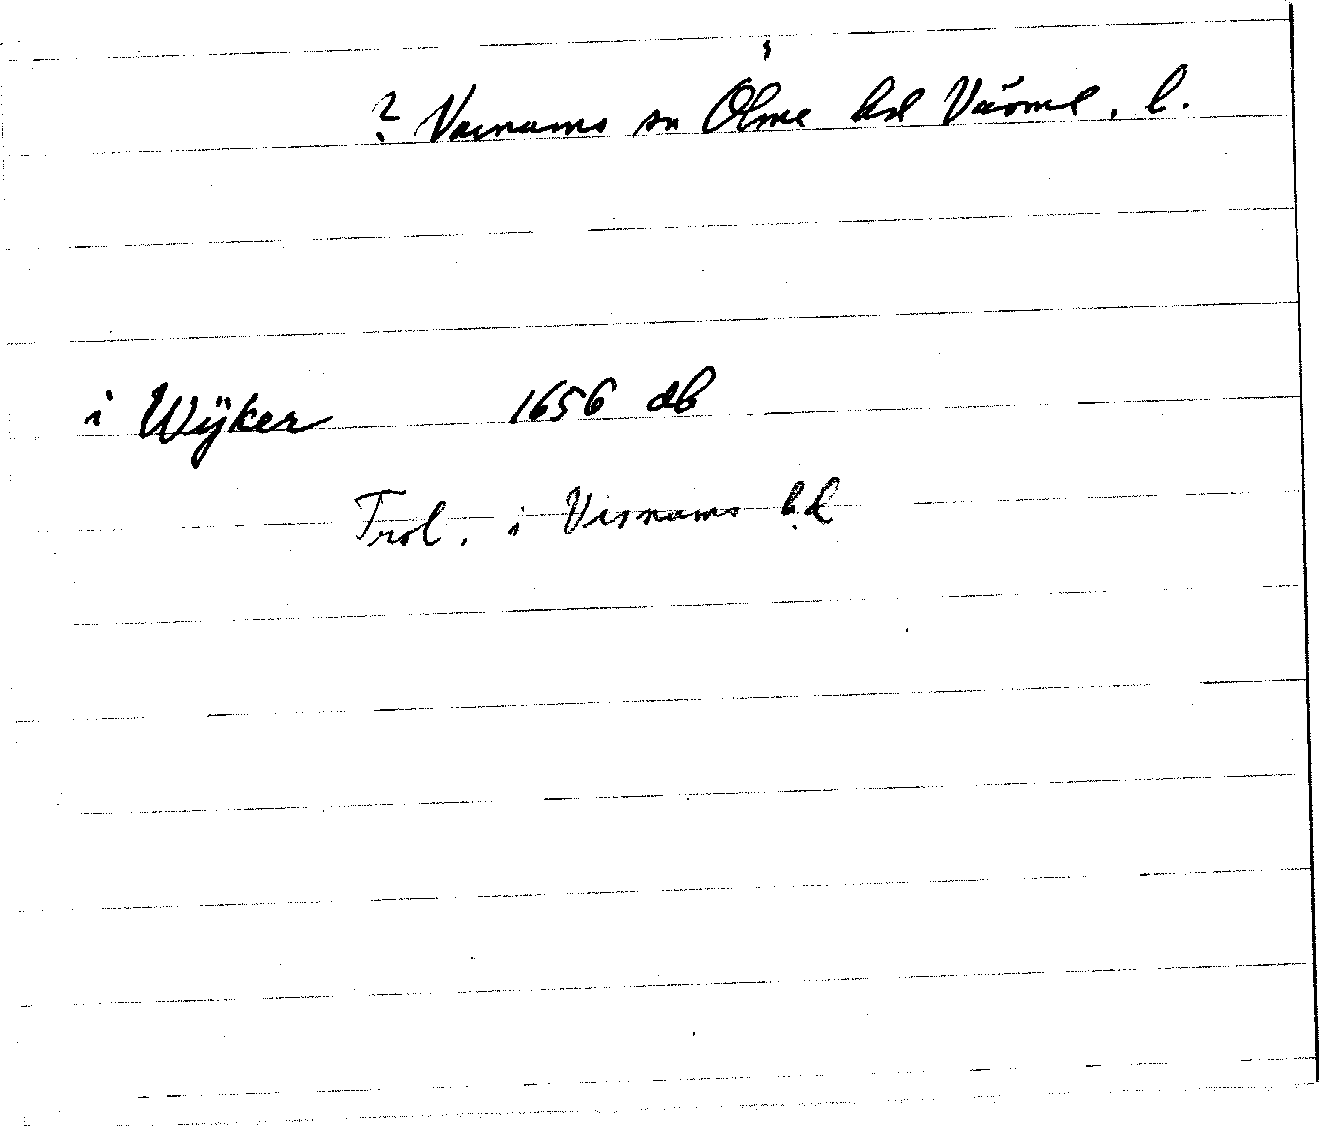 ? Varnums sn Ölme hd Värml. l.
i Wÿker 1656 db
Trol. i Visnums hd